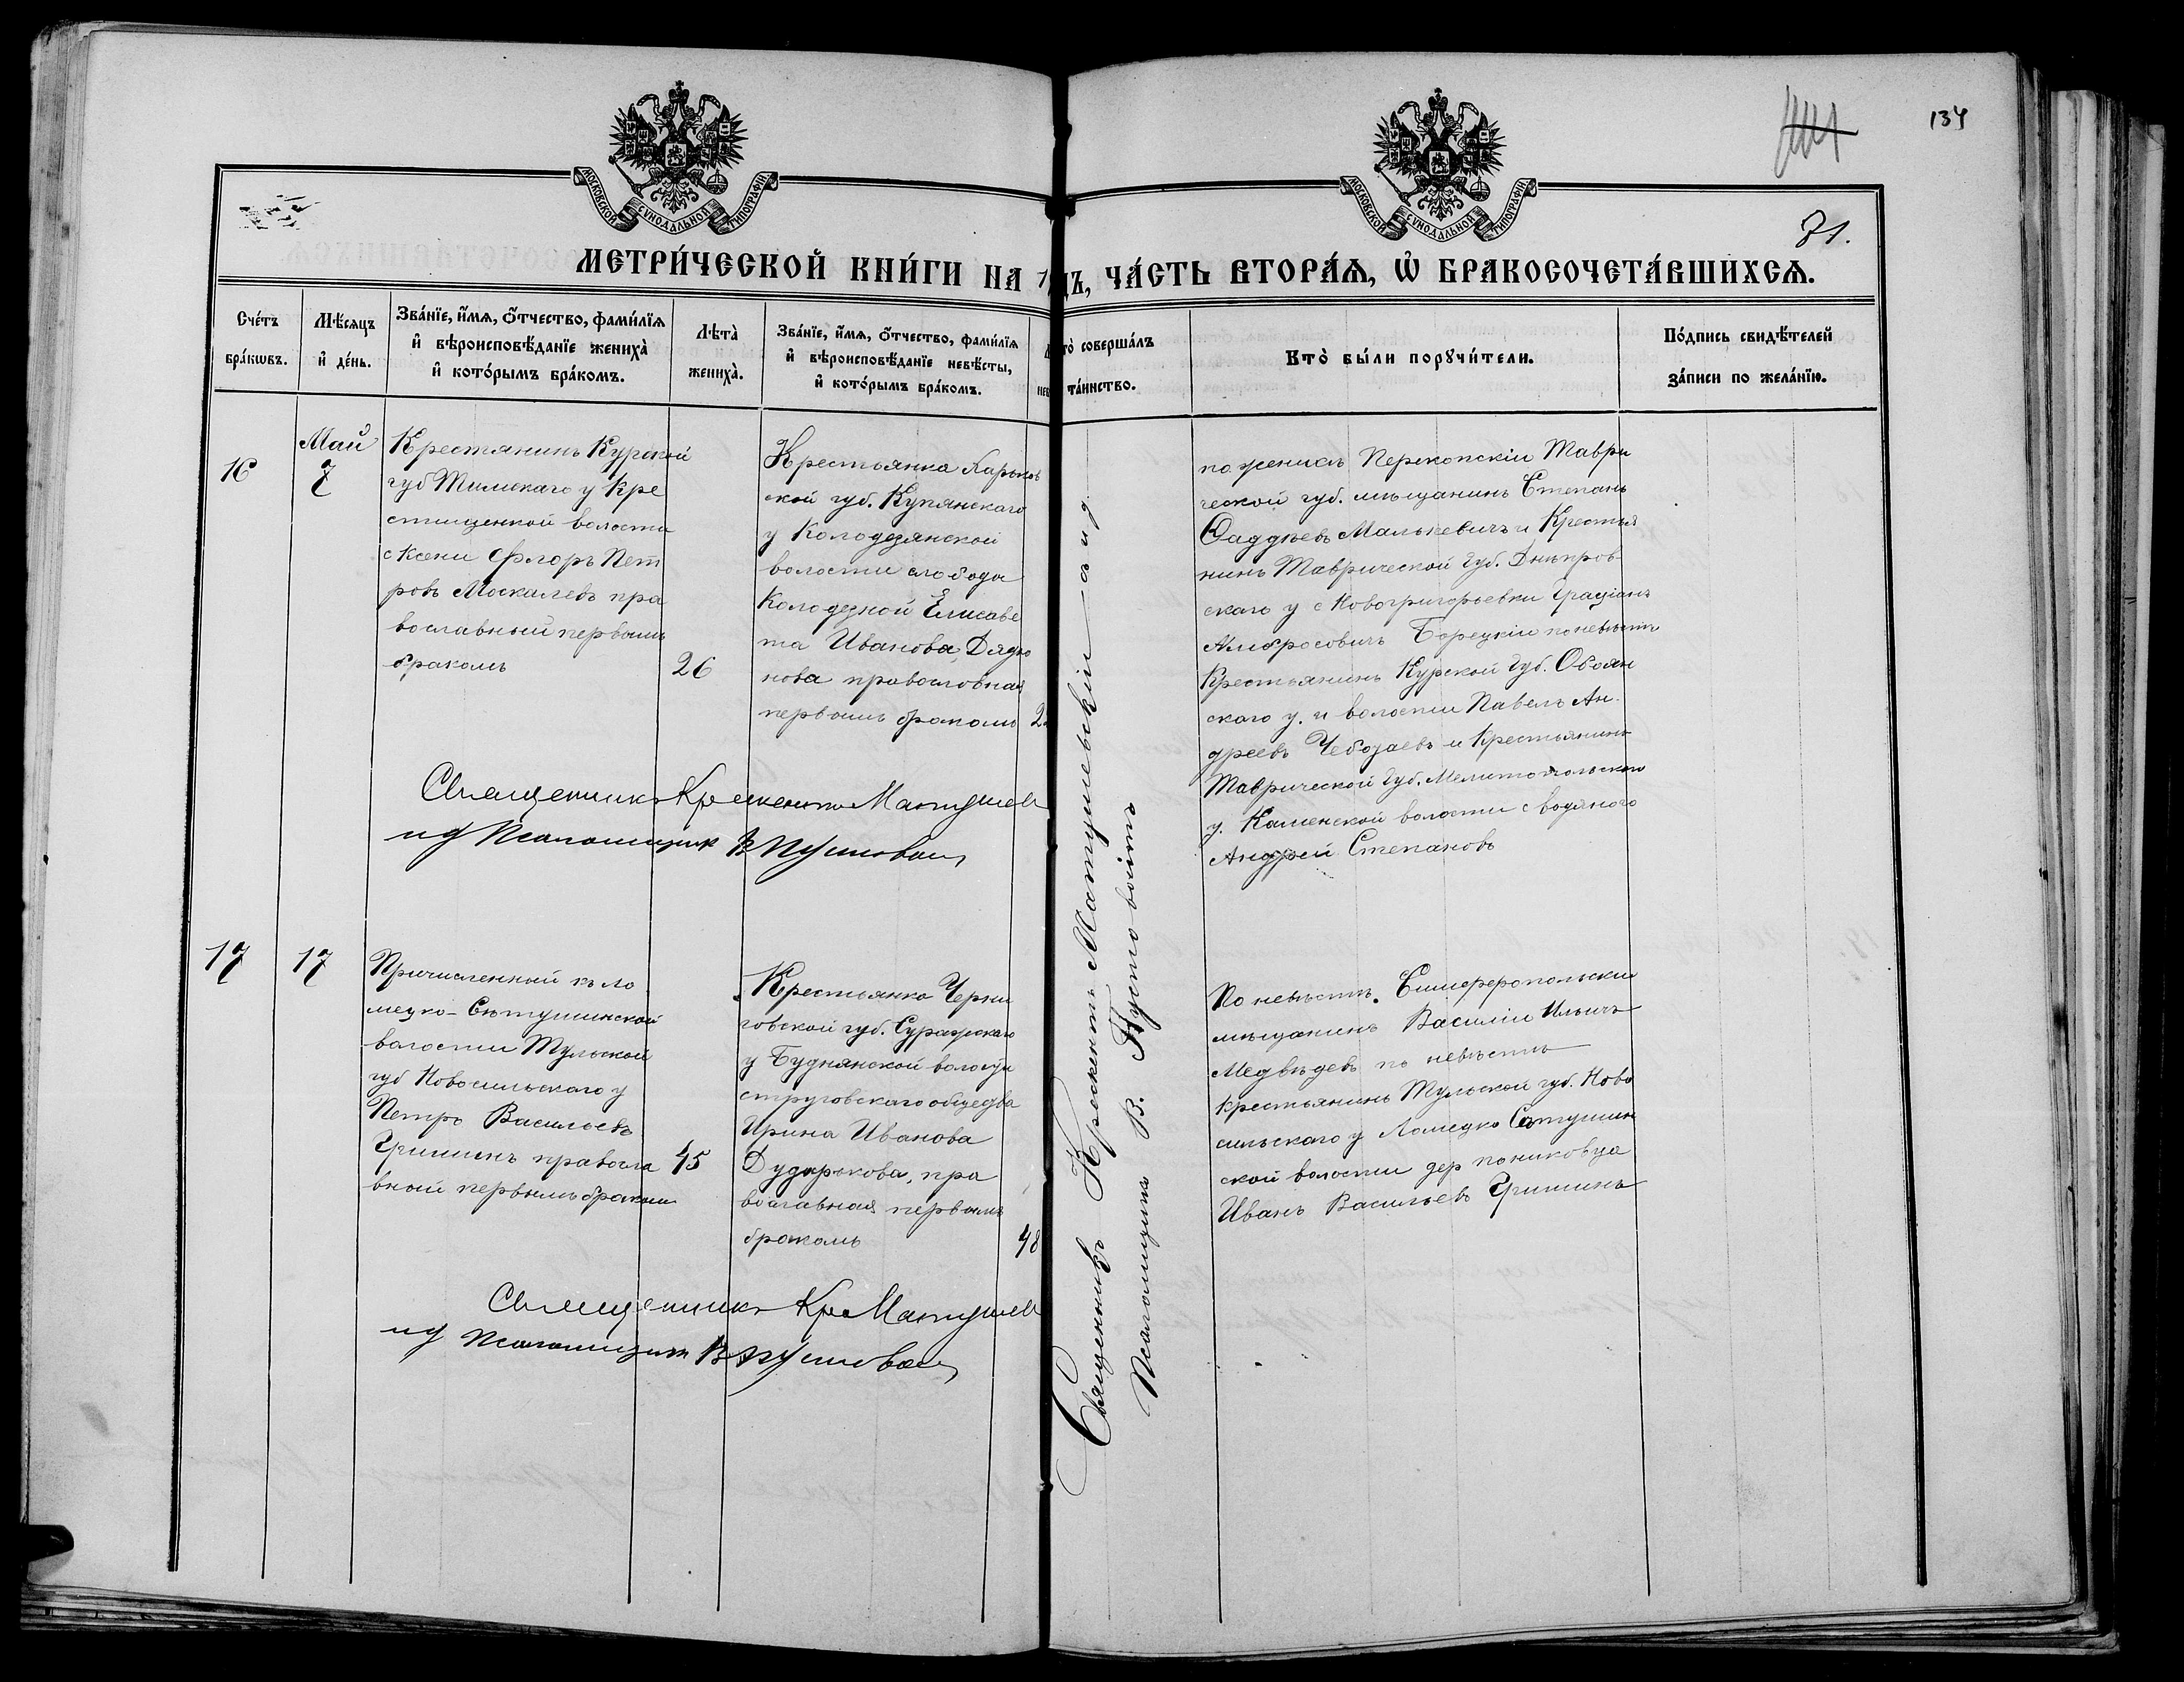 134
71.
МОСКОВСКОЙ СѴНОДАЛЬНОЙ ТИПОГРАФІИ
МОСКОВСКОЙ СѴНОДАЛЬНОЙ ТИПОГРАФІИ
МЕТРИ́ЧЕСКОЙ КНИ́ГИ НА 1
ДЪ, ЧА́СТЬ ВТОРА́Ѧ, Ѽ БРАКОСОЧЕТА́ВШИХСѦ.
Сче́тъ
бра́кѡвъ.
Мѣ́сѧцъ
и҆ де́нь.
Зва́нїе, и҆́мѧ, ѻ҆́тчество, фами́лїѧ
и҆ вѣроисповѣ́данїе жениха̀
и҆ кото́рымъ бра́комъ.
Лѣта̀
жениха̀.
Зва́нїе, и҆́мѧ, ѻ҆́тчество, фами́лїѧ
и҆ вѣроисповѣ́данїе невѣ́сты,
и҆ кото́рымъ бра́комъ.
то̀ соверша́лъ
та́инство.
Кто̀ бы́ли порꙋчи́тели.
По́дпись свидѣ́телей
за́писи по жела́нїю.
16
Май
7
Крестянинъ Курской
губ Тимскаго у Кре
стищенкой волости
с Ксени Флоръ Пет
ровъ Москалевъ пра
вославный первымъ
бракомъ
26
Крестьянка Харьков
ской губ. Купянскаго
у Колодезянской
волости слобода
Колодезной Елисаве
та Иванова Дядю
нова православная
первымъ бракомъ
2
Священникъ Крескентъ Матушев
ид Псаломщик В Пустовои
по женихѣ Перекопскіи Таври
ческой губ. мѣщанинъ Степанъ
Фаддѣевъ Малькевичъ и Крестья
нинъ Таврической Губ. Днѣпров
скаго у с Новогригорьевки Граціанъ
Амвросовичъ Борецкіи по невѣстѣ
Крестьянинъ Курской Губ. Обоян
скаго у. и волости Павелъ Ан
дреевъ и Крестьянинъ
Таврической Губ. Мелитопольскаго
у. Каменской волости с водяного
Андрей Степановъ
Священникъ Крескентъ Матушевскій и д
Псаломщика В. Пустовоитъ
17
17
Причисленный къ Ло
мецко-Сѣтушинской
волости Тульской
губ Новосильскаго у
Петръ Васильевъ
Гришинъ правосла
вный первымъ бракомъ
45
Крестьянка Черни
говской губ. Суражскаго
у Буднянской волости
струговскаго общества
Ирина Иванова
Дударькова, пра
вославная первымъ
бракомъ
48
Священникъ Кре Матушев
ид Псаломщик В Пустовои
По невѣстѣ. Симферопольскіи
мѣщанинъ Василіи Ильичъ
Медвѣдевъ по невѣстѣ
крестьянинъ Тульской губ. Ново
сильскаго у Ломецко Сѣтушин
ской волости дер пониковца
Иванъ Васильевъ Гришинъ